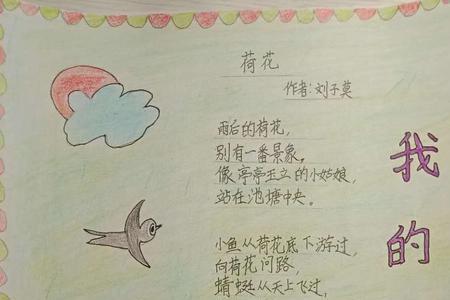 荷花
作者:刘子莫
雨后的荷花,
别有一番景象。
像亭亭玉立的小姑娘,
站在池塘中央。
小鱼从荷花底下游过,
向荷花问路,
蜻蜓从天上飞过,
我的